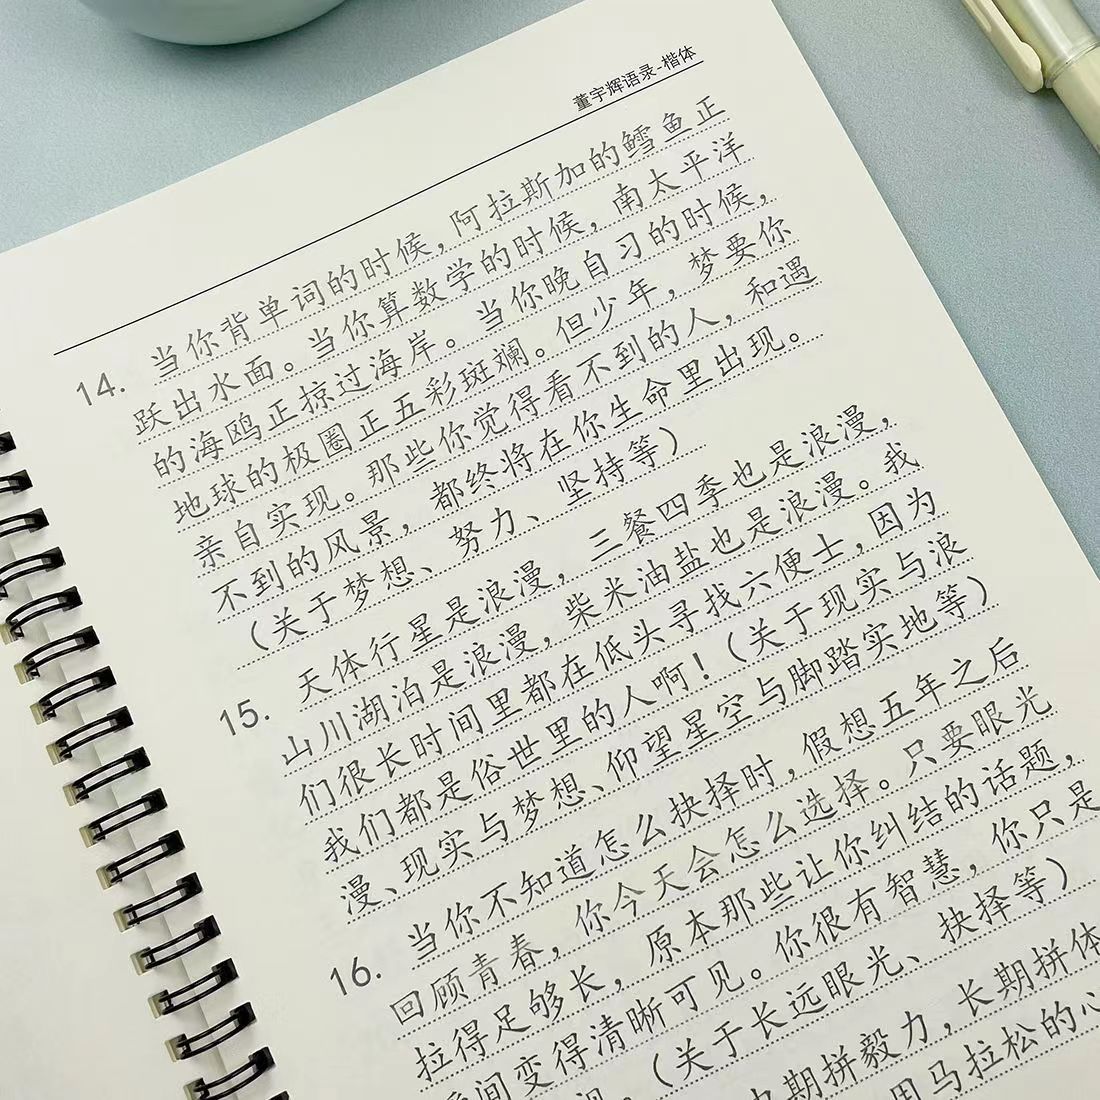 董宇辉语录-楷体
14. 当你背单词的时候,阿拉斯加的鳕鱼正
跃出水面。当你算数学的时候,南太平洋
的海鸥正掠过海岸。当你晚自习的时候,
地球的极圈正五彩斑斓。但少年,梦要你
亲自实现。那些你觉得看不到的人,和遇
不到的风景,都终将在你生命里出现。
(关于梦想、努力、坚持等)
15. 天体行星是浪漫,三餐四季也是浪漫,
山川湖泊是浪漫,柴米油盐也是浪漫。我
们很长时间里都在低头寻找六便士,因为
我们都是俗世里的人啊!(关于现实与浪
漫、现实与梦想、仰望星空与脚踏实地等)
16. 当你不知道怎么抉择时,假想五年之后
回顾青春,你今天会怎么选择。只要眼光
拉得足够长,原本那些让你纠结的话题,
间变得清晰可见。你很有智慧,你只是
(关于长远眼光、抉择等)
期拼毅力,长期拼体
用马拉松的心